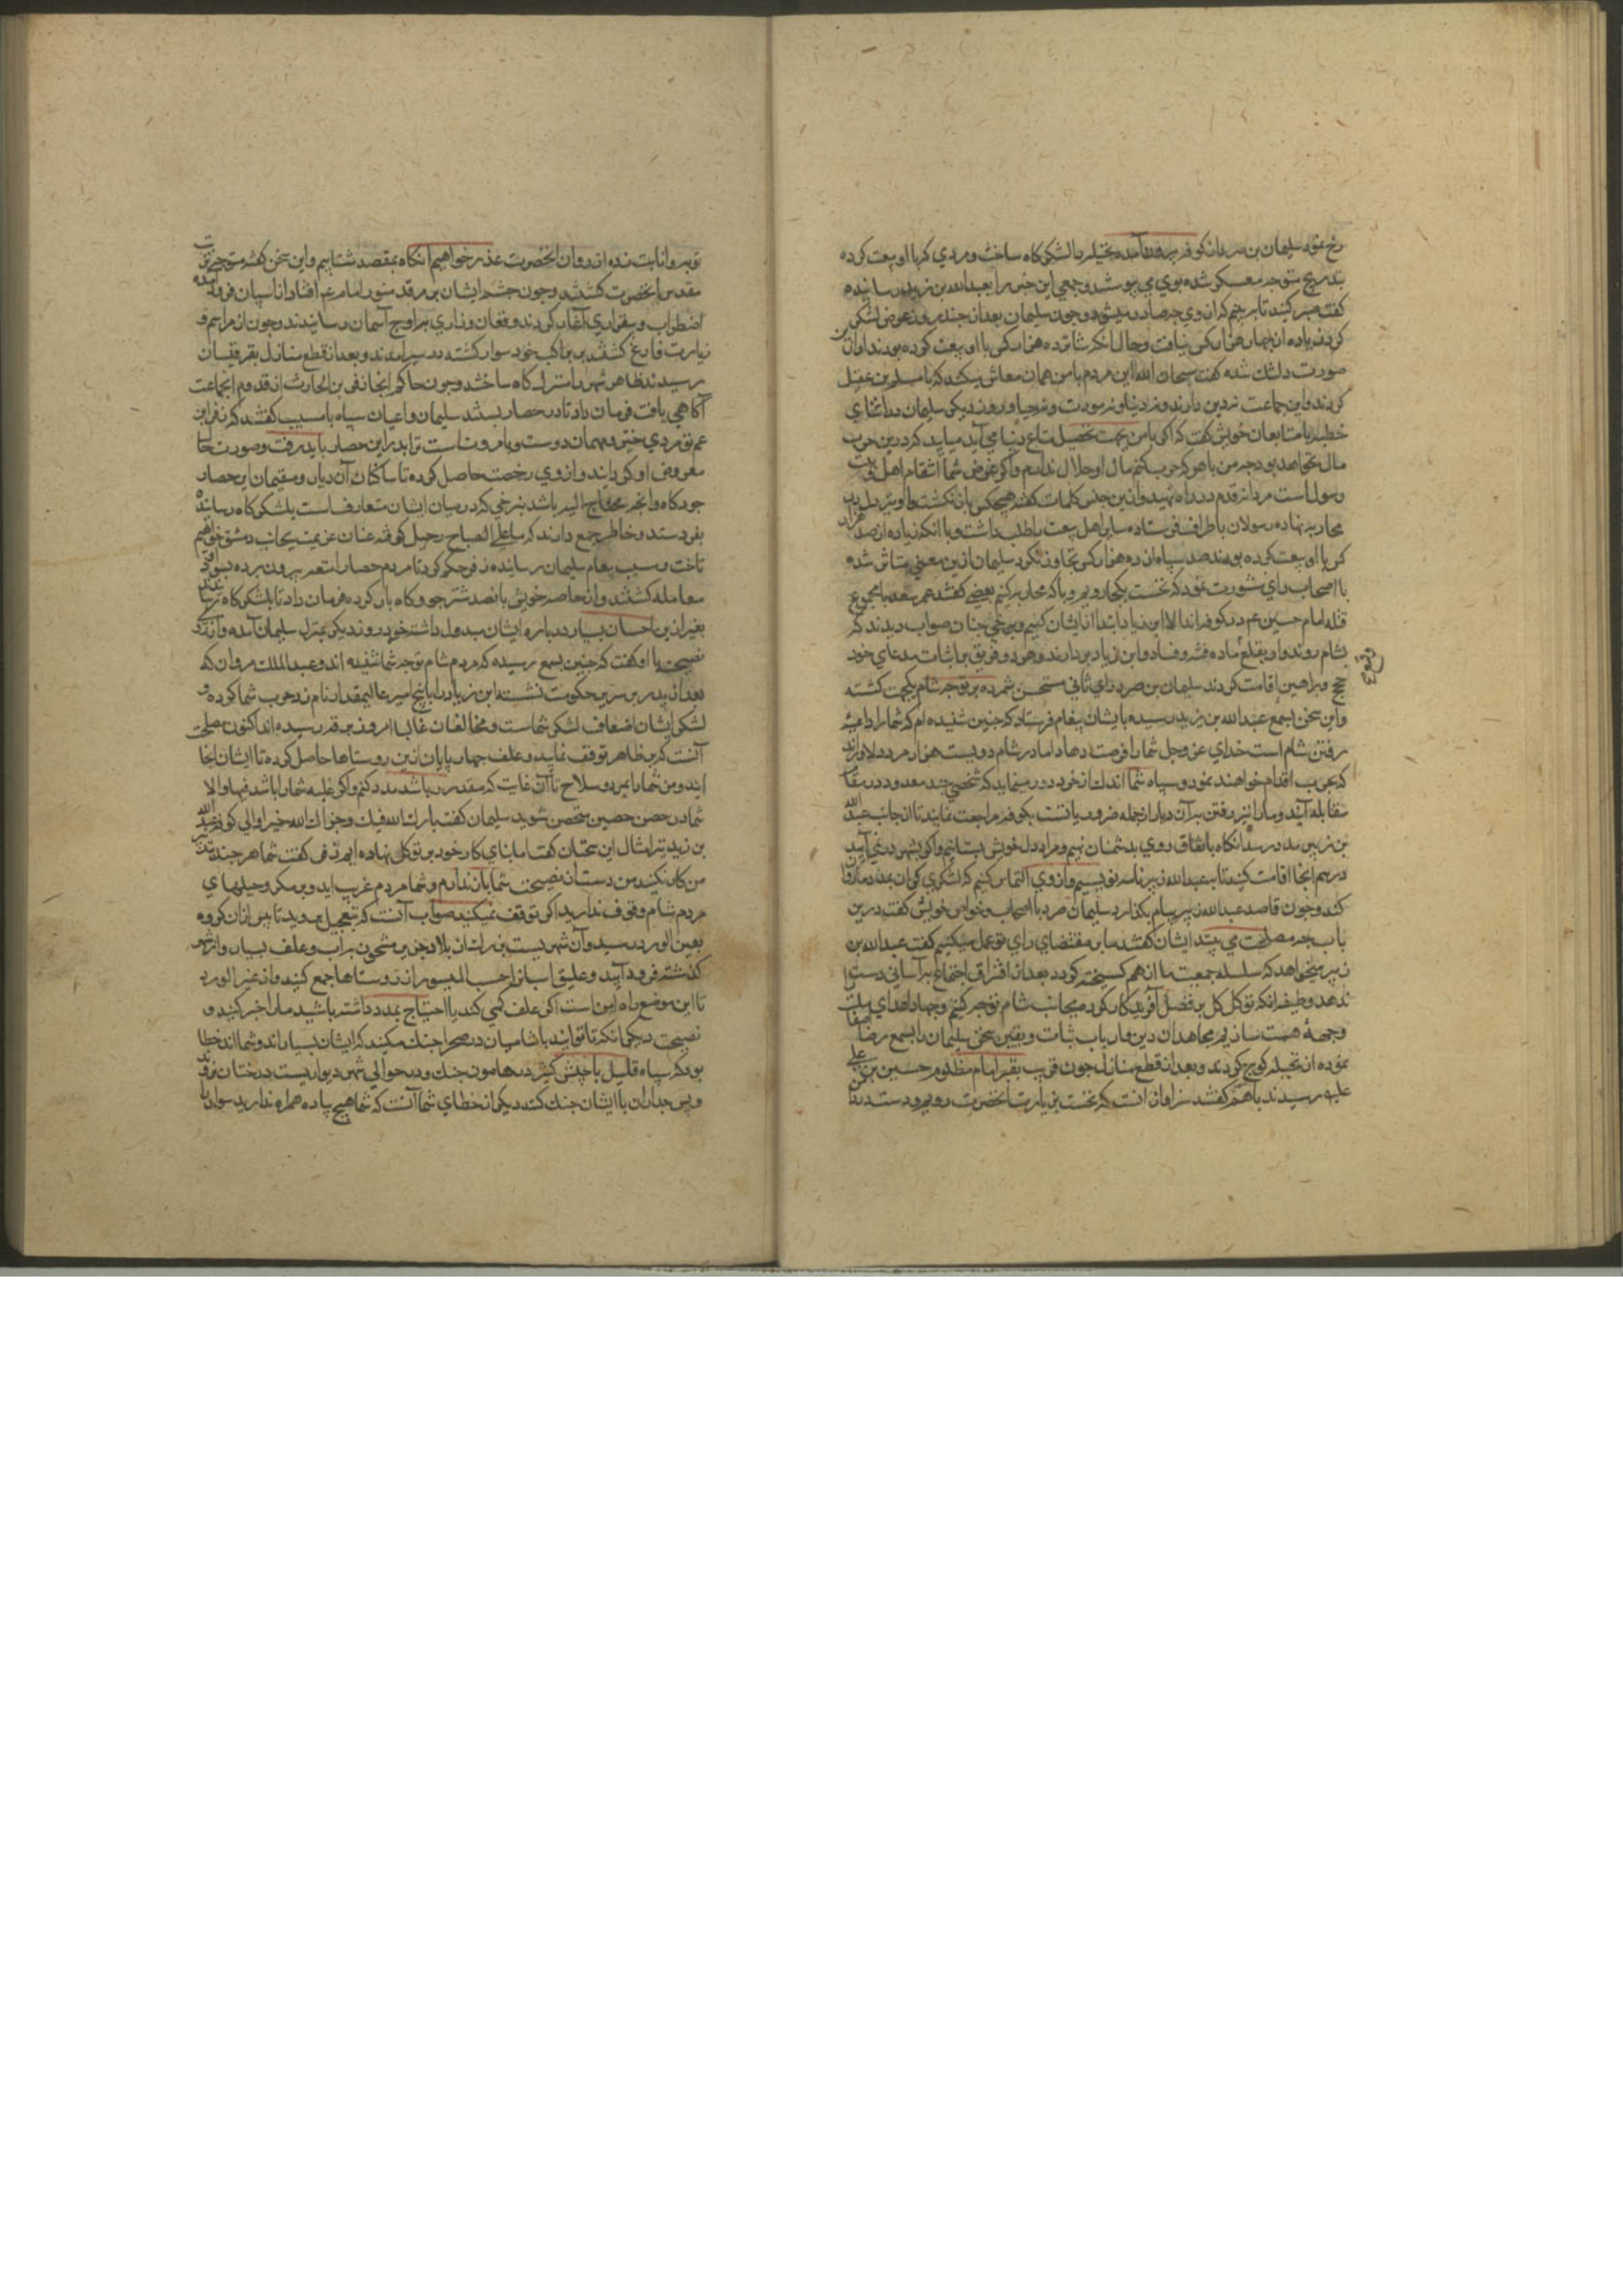 رخ نمود سلیمان بن صرد از کوفه بیرون آمده نخیله را لشکرکاه ساخت و مردمی که با او بیعت کرده
بتدریج متوجه معسکر شده بوی می پیوستند و جمعی این خبر را بعبدالله بن یزید رسانیده
گفتند صبر کنید تا ببینم که از وی چه صادر میشود و چون سلیمان بعد از چند روز عرض لشکر
کرد زیاده از چهار هزار کس نیافت و حال آنکه شانزده هزار کس با او بیعت کرده بودند از آن
صورت دلتنک شده گفت سبحان الله این مردم با من همان معاش میکنند که با مسلم بن عقیل
کردند و این جماعت نه دین دارند و نه دنیا و نه مروت و نه حیا و روز دیکر سلیمان در اثنای
خطبه با متابعان خویش گفت که اکر با من بجهت تحصیل متاع دنیا می آیید میباید که درین حرب
مال نخواهد بود چه من با هر که حرب کنم مال او حلال ندارم و اکر غرض شما انتقام اهل بیت
رسول است مردانه قدم در راه نهید و ازین جنس کلمات گفته هیچکس باز نکشت و او نیز دل بر
محاربه نهاده رسولان باطراف فرستاده سایر اهل بیعت را طلب داشت و با آنکه زیاده از صد هزار
کس با او بیعت کرده بودند عدد سپاه از ده هزار کس تجاوز نکرد سلیمان ازین معنی متاثر شده
با اصحاب رای مشورت نمود که نخست بکجا رویم و با که محاربه کنیم بعضی گفتند عمر سعد با مجموع
قتله امام حسین ع در کوفه اند الا ابن زیاد ابتدا از ایشان کنیم و برخی چنان صواب دیدند که
بشام روند و اول بقلع ماده فتنه و فساد و ابن زیاد پردازند و هر دو فریق بر اثبات مدعای خود
حجج و براهین اقامت کردند سلیمان بن صرد رای ثانی مستحسن شمرده بر توجه شام یکجهت کشته
و این سخن بسمع عبدالله بن یزید رسیده بایشان پیغام فرستاد که چنین شنیده ام که شما را داعیه
رفتن شام است خدای عز و جل شما را فرصت دهاد اما در شام دویست هزار مرد دلاورند
که بحرب اقدام خواهند نمود و سپاه شما اندک از خرد دور مینماید که شخصی چند معدود در مقام
مقابله آیند و ما را نیز رفتن بر آن دیار از جمله ضروریاتست بکوفه مراجعت نمایید تا از جانب عبدالله
بن زبیر مدد رسد آنکاه باتفاق روی بدشمنان نهیم و مراد دل خویش بستانیم و اکر بشهر در نمی آیید
در هم آنجا اقامت کنید تا بعبدالله زبیر نامه نویسیم و از وی التماس کنیم که لشکری کران بمدد ما روان
کند و چون قاصد عبدالله زبیر پیام بگذارد سلیمان صرد با اصحاب و خواص خویش گفت درین
باب چه مصلحت می بینید ایشان گفتند ما بر مقتضای رای تو عمل میکنیم گفت عبدالله بن
زبیر میخواهد که سلسله جمعیت ما از هم کسیخته کردد و بعد از افتراق اجتماع بآسانی دست
ندهد وظیفه آنکه توکل کل بر فضل آفریدکار کرده بجانب شام توجه کنیم و جهاد اعدای ملت
وجهه همت سازیم مجاهدان دین و ارباب ثبات و یقین سخن سلیمان را بسمع رضا اصغا
نموده از نخیله کوچ کردند و بعد از قطع منازل چون قریب بقبر امام مظلوم حسین بن علی
علیه رسیدند با هم گفتند سزاوار آنست که نخست بزیارت آنحضرت رویم و دست در دامن
توبه و انابت زده از روان آنحضرت عذر خواهیم آنکاه بمقصد شتابیم و این سخن گفته متوجه تربت
مقدس آنحضرت کشتند و چون چشم ایشان بر مرقد منور امام ع افتاد از اسپان فرود آمده
اضطراب و بیقراری آغاز کردند و فغان و زاری بر اوج آسمان رسانیدند و چون از مراسم
زیارت فارغ کشتند بر مراکب خود سوار کشته در سیر آمدند و بعد از قطع منازل بقرقیسیان
رسیدند ظاهر شهر را منزلکاه ساختند و چون حاکم آنجا زفر بن الحارث از قدوم آنجماعت
آکاهی یافت فرمان داد تا در حصار ببستند سلیمان و اعیان سپاه با مسیب گفتند که زفر ابن
عم تو مردی خیر و مهمان دوست و با مروتست ترا بدر این حصار باید رفت و صورت حال
معروض او کردانید و از وی رخصت حاصل کرده تا ساکنان آن دیار و مقیمان این حصار
جو و کاه و آنچه محتاج الیه باشد بنرخی که در میان ایشان متعارفست بلشکرکاه رسانند
بفرستد و خاطر جمع دارند که ما علی الصباح رحیل کرفته عنان عزیمت بجانب دمشق خواهیم
تافت و مسیب پیغام سلیمان رسانیده زفر حکم کرد تا مردم حصار امتعه بیرون برده بسودا و
معامله کشتند و از خاصه خویش پانصد شتر جو و کاه بار کرده فرمان داد تا بلشکرکاه رسانند
بغیر ازین احسان بسیار در باره ایشان مبذول داشته خود روز دیکر بمنزل سلیمان آمده و از روی
نصیحت با او گفت که چنین بسمع رسیده که مردم شام توجه شما شنیده اند و عبدالملک مروان که
بعد از پدر بر سریر حکومت نشسته ابن زیاد را با پنج امیر عالیمقدار نامزد حرب شما کرده و
لشکر ایشان اضعاف لشکر شماست و مخالفان غالبا امروز برقه رسیده اند اکنون مصلحت
آنست که بر ظاهر توقف نمایید و علف چهار پایان ازین روستاها حاصل کرده تا ایشان اینجا
آیند و من شما را بمرد و سلاح تا آن غایت که مقدور باشد مدد کنم و اکر غلبه شما را باشد فبها و الا
شما درین حصن حصین متحصن شوید سلیمان گفت بارک الله فیک و جزاک الله خیرا والی کوفه عبدالله
بن یزید نیز امثال این سخنان گفت اما بنای کار خود بر توکل نهاده ایم زفر گفت شما هر چند بتدبیر
من کار نکنید من دست از نصیحت شما باز ندارم و شما مردم غریب اید و بر مکر و حیلهای
مردم شام وقوف ندارید اکر توقف نمیکنید صواب آنست که بتعجیل بروید تا پیش از آن کروه
بعین الورد رسید و آن شهریست بزرک از بلاد جزیره مشحون بر آب و علف بسیار و از شهر
گذشته فرود آیید و علیق اسبانرا حسب المیسور از روستاها جمع کنید و از عین الورد
تا این موضع راه ایمن است اکر علف کمی کند یا احتیاج بمدد داشته باشید ما را خبر کنید و
نصیحت دیکر آنکه تا توانید با شامیان در صحرا جنک مکنید که ایشان بسیارند و شما اندک خطا
بود که سپاه قلیل با جیش کثیر در هامون جنک و در حوالی شهر دیواریست درختان
و پس جداران با ایشان جنک کنید دیکر از خطای شما آنست که شما هیچ پیاده همراه ندارید سواران